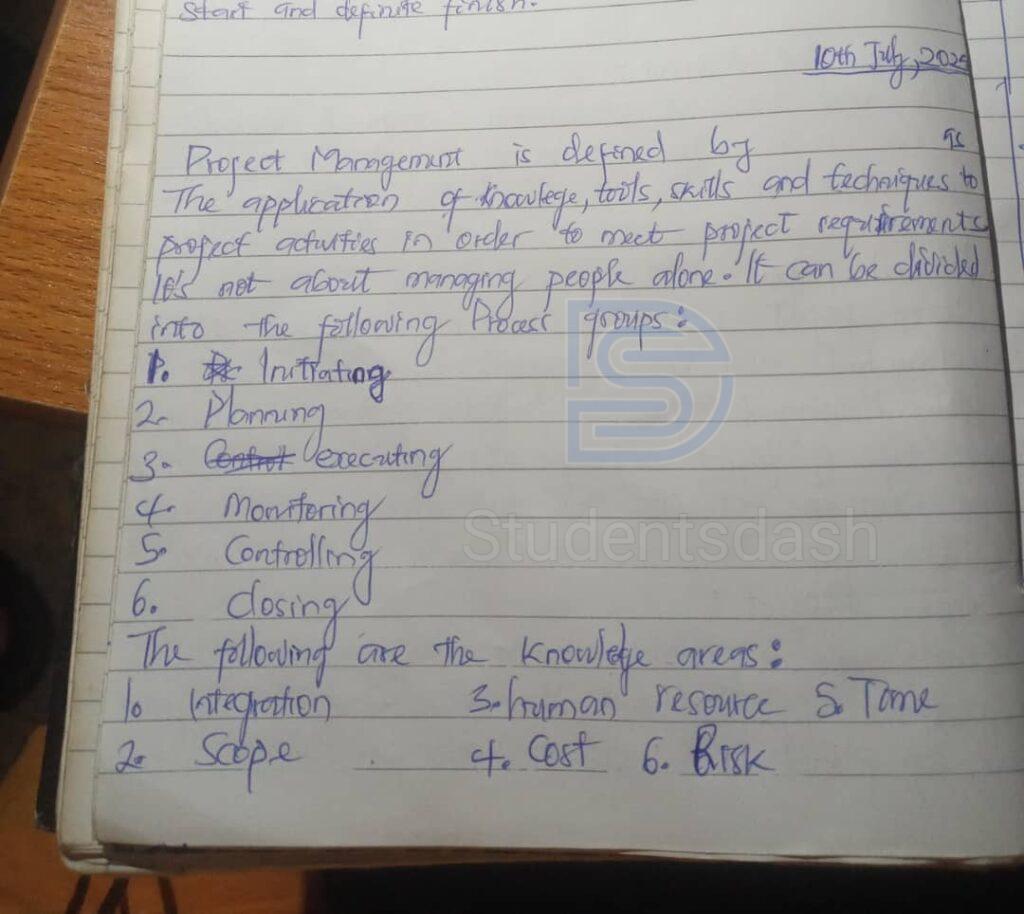 Start and definite finish.
10th July, 202
Project Management is defined by as
The application of knowlege, tools, skills and techniques to
project activities in order to meet project requirements
It's not about managing people alone. It can be divided
into the following Process groups:
1. Initiating
2. Planning
3. Control executing
4. Monitoring
5. Controlling
6. closing
Studentsdash
The following are the knowledge areas:
1. Integration 3. human resource 5. Time
2. Scope 4. Cost 6. Risk